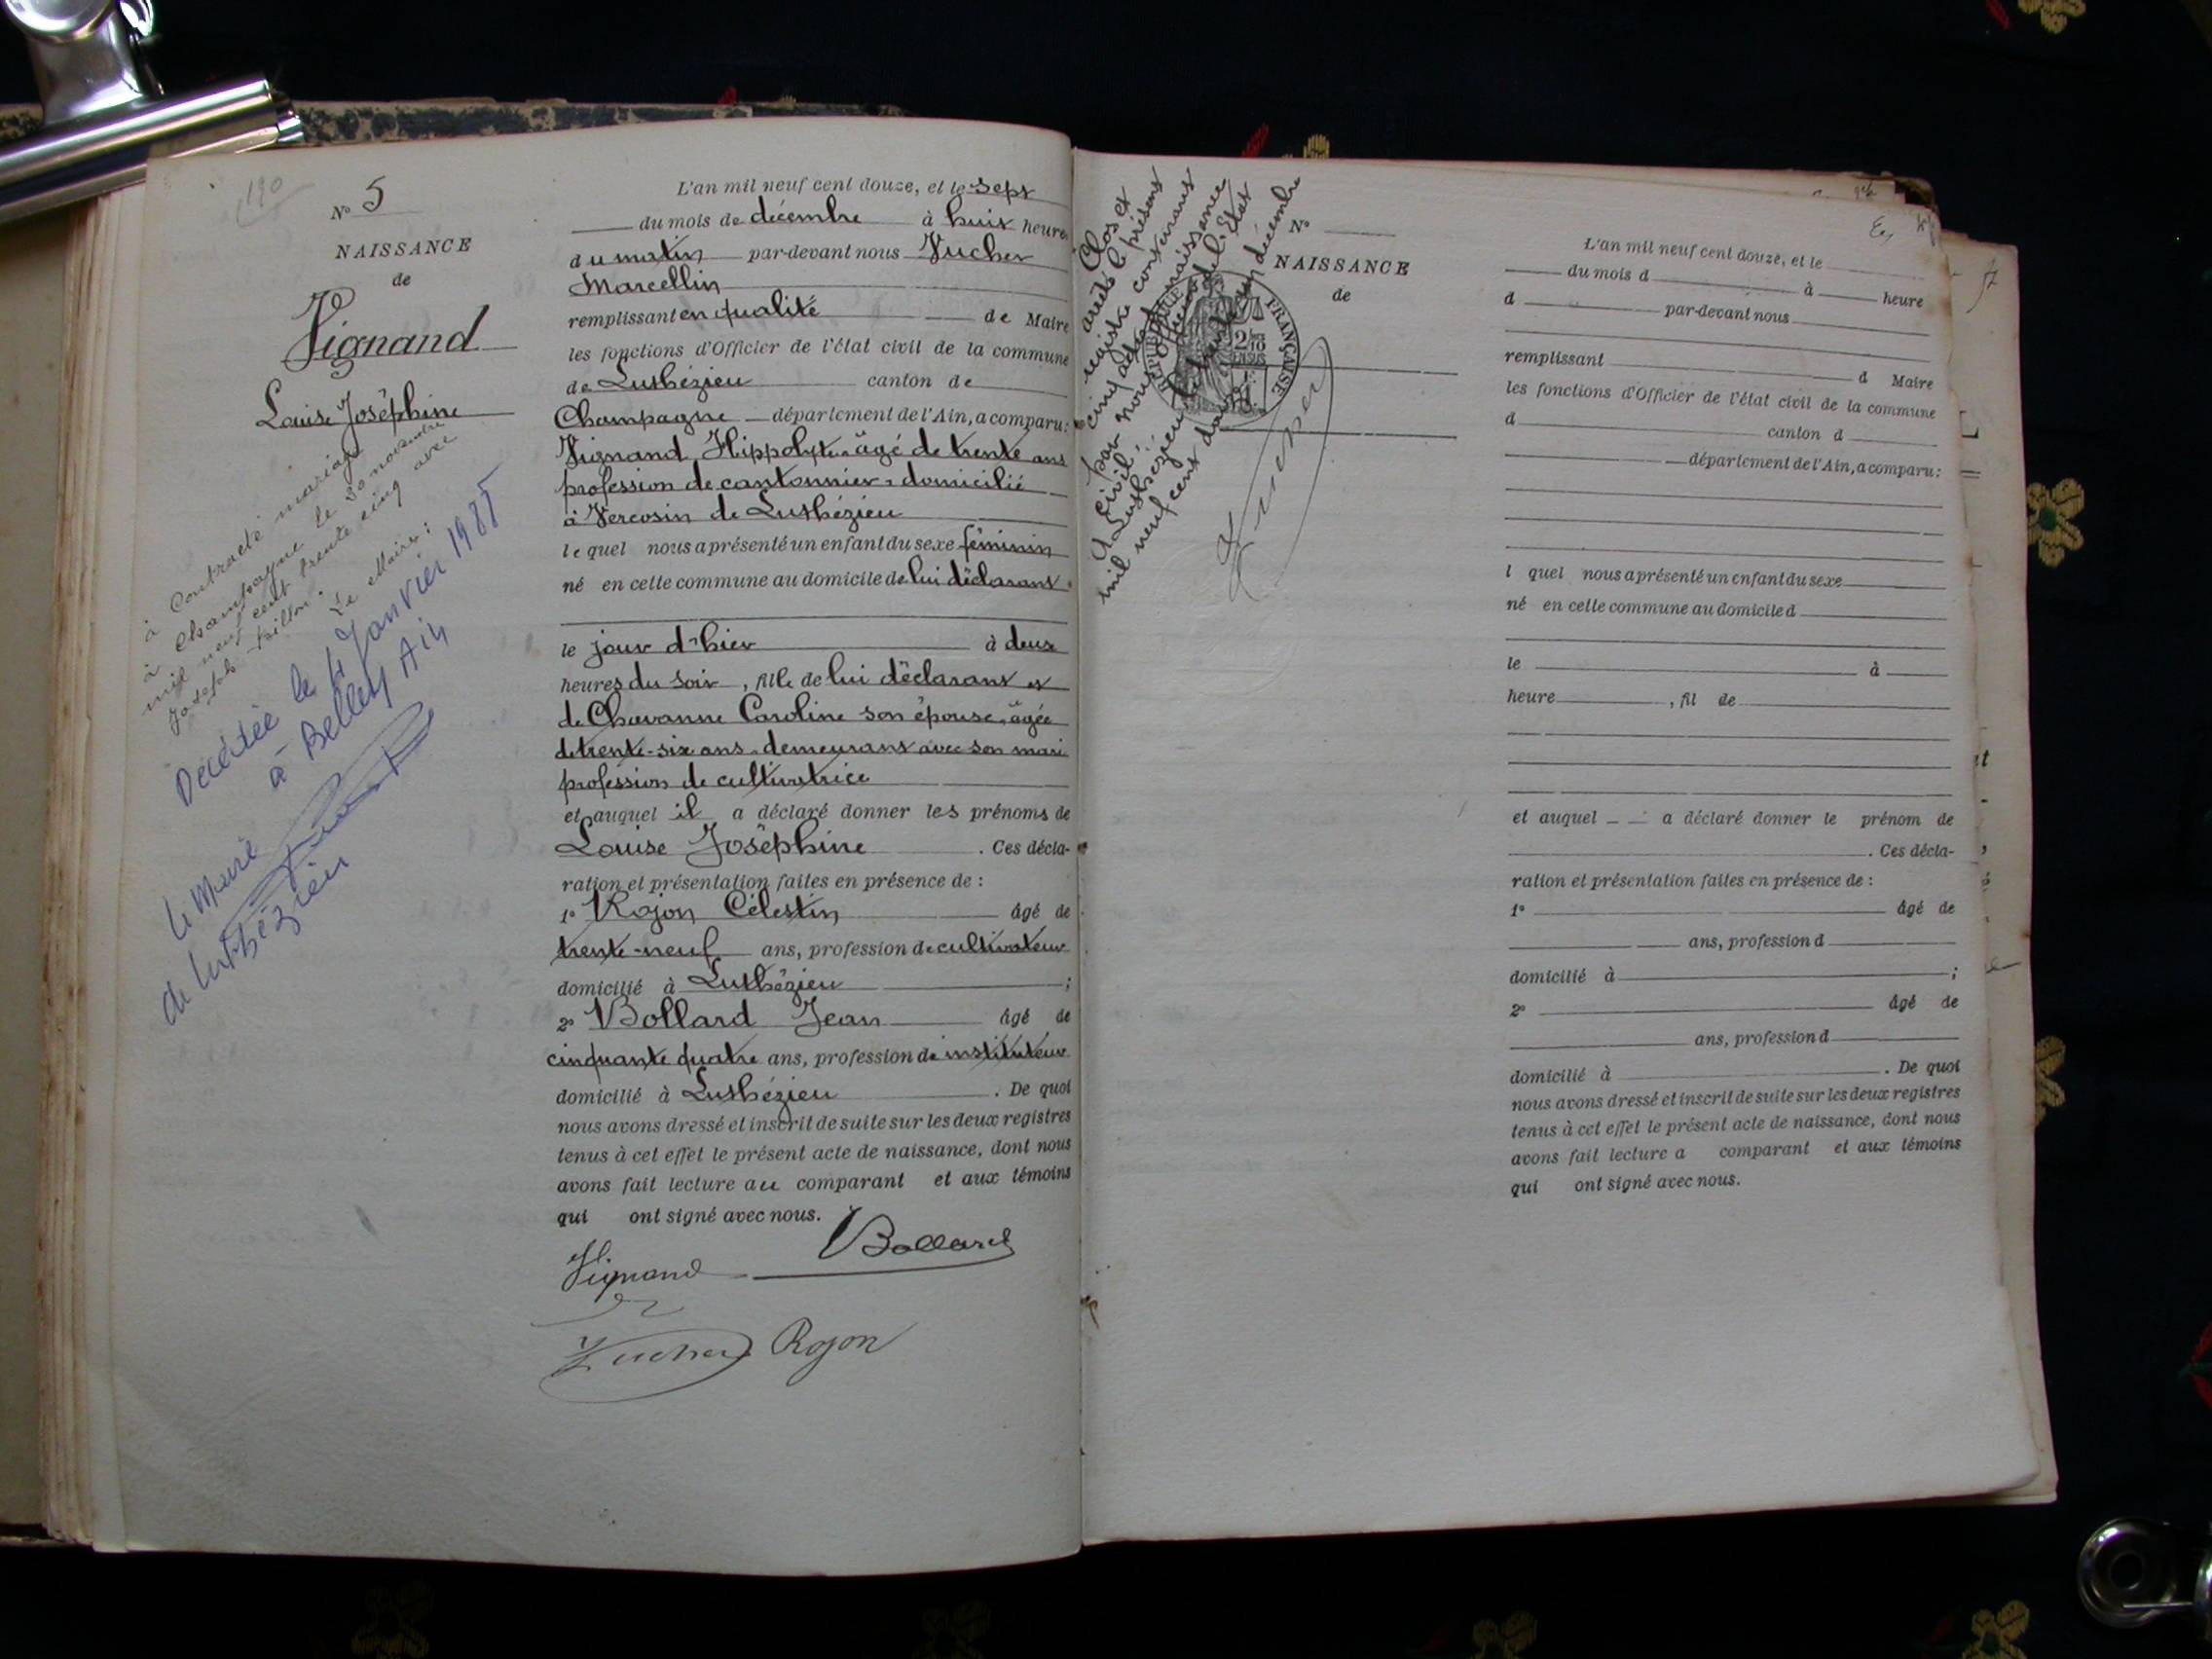 190
N° 5
NAISSANCE
de
Vignand
Louise Joséphine
à Contracté mariage
à Champagne le 30 novembre
mil neuf cent trente cinq avec
Joseph
Le Maire :
Décédée le 4 Janvier 1985
à Belley Ain
Le Maire
de Luthézieu
L'an mil neuf cent douze, et le sept
du mois de décembre à huit heures
du matin par-devant nous Vucher
Marcellin
remplissant en qualité de Maire
les fonctions d'Officier de l'état civil de la commune
de Luthézieu canton de
Champagne département de l'Ain, a comparu :
Vignand Hippolyte âgé de trente ans
profession de cantonnier, domicilié
à Vercosin de Luthézieu
lequel nous a présenté un enfant du sexe féminin
né en cette commune au domicile de lui déclarant.
le jour d'hier à deux
heures du soir, fille de lui déclarant et
de Chavanne Caroline son épouse, âgée
de trente-six ans, demeurant avec son mari
profession de cultivatrice
et auquel il a déclaré donner les prénoms de
Louise Joséphine. Ces décla-
ration et présentation faites en présence de :
1° Rojon Célestin âgé de
trente-neuf ans, profession de cultivateur
domicilié à Luthézieu ;
2° Bollard Jean âgé de
cinquante quatre ans, profession de instituteur
domicilié à Luthézieu. De quoi
nous avons dressé et inscrit de suite sur les deux registres
tenus à cet effet le présent acte de naissance, dont nous
avons fait lecture au comparant et aux témoins
qui ont signé avec nous.
Bollard
Vignand
Vucher Rojon
Clos et
arrêté le présent
registre contenant
cinq actes de naissance
par nous Officier de l'Etat
civil.
A Luthézieu le trente un décembre
mil neuf cent douze
Vucher
RÉPUBLIQUE FRANÇAISE
N°
NAISSANCE
de
L'an mil neuf cent douze, et le
du mois d à heure
d par-devant nous
remplissant d Maire
les fonctions d'Officier de l'état civil de la commune
d canton d
département de l'Ain, a comparu :
l quel nous a présenté un enfant du sexe
né en cette commune au domicile d
le à
heure , fil de
et auquel a déclaré donner le prénom de
. Ces décla-
ration et présentation faites en présence de :
1° âgé de
ans, profession d
domicilié à ;
2° âgé de
ans, profession d
domicilié à . De quoi
nous avons dressé et inscrit de suite sur les deux registres
tenus à cet effet le présent acte de naissance, dont nous
avons fait lecture a comparant et aux témoins
qui ont signé avec nous.